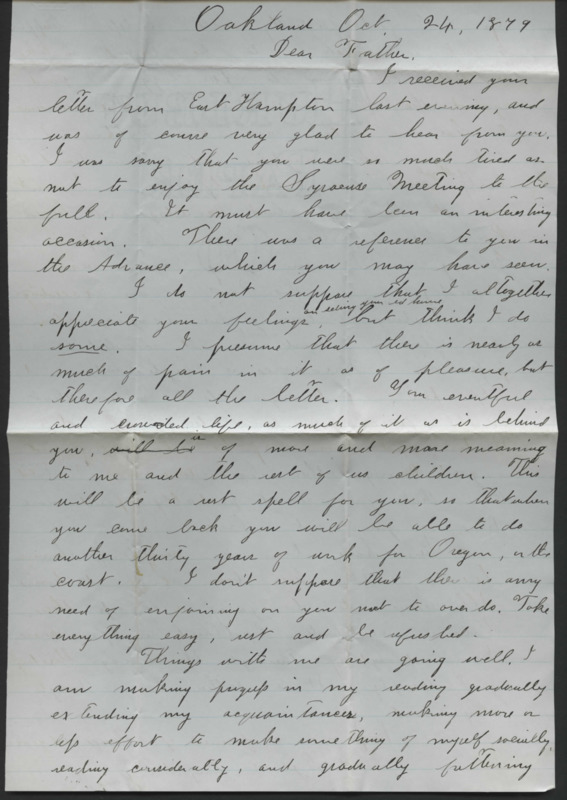 Oakland Oct. 24, 1879
Dear Father.
I received your
letter from East Hampton last evening, and
was of course very glad to hear from you.
I was sorry that you were so much tired as
not to enjoy the Syracuse Meeting to the
full. It must have been an interesting
occasion. There was a reference to you in
the Advance, which you may have seen.
I do not suppose that I altogether
on seeing your old home
appreciate your feelings, but think I do
some. I presume that there is nearly as
much of pain in it as of pleasure, but
therefore all the better. Your eventful
and crowded life, as much of it as is behind
you, will be is of more and more meaning
to me and the rest of us children. This
will be a rest spell for you, so that when
you come back you will be able to do
another thirty years of work for Oregon, or the
coast. I don't suppose that ther is any
need of enjoining on you not to over do. Take
everything easy, rest and be refreshed.
Things with me are going well. I
am making progress in my reading gradually
extending my acquaintances, making more or
less effort to make something of myself socially,
reading considerably, and gradually fattening